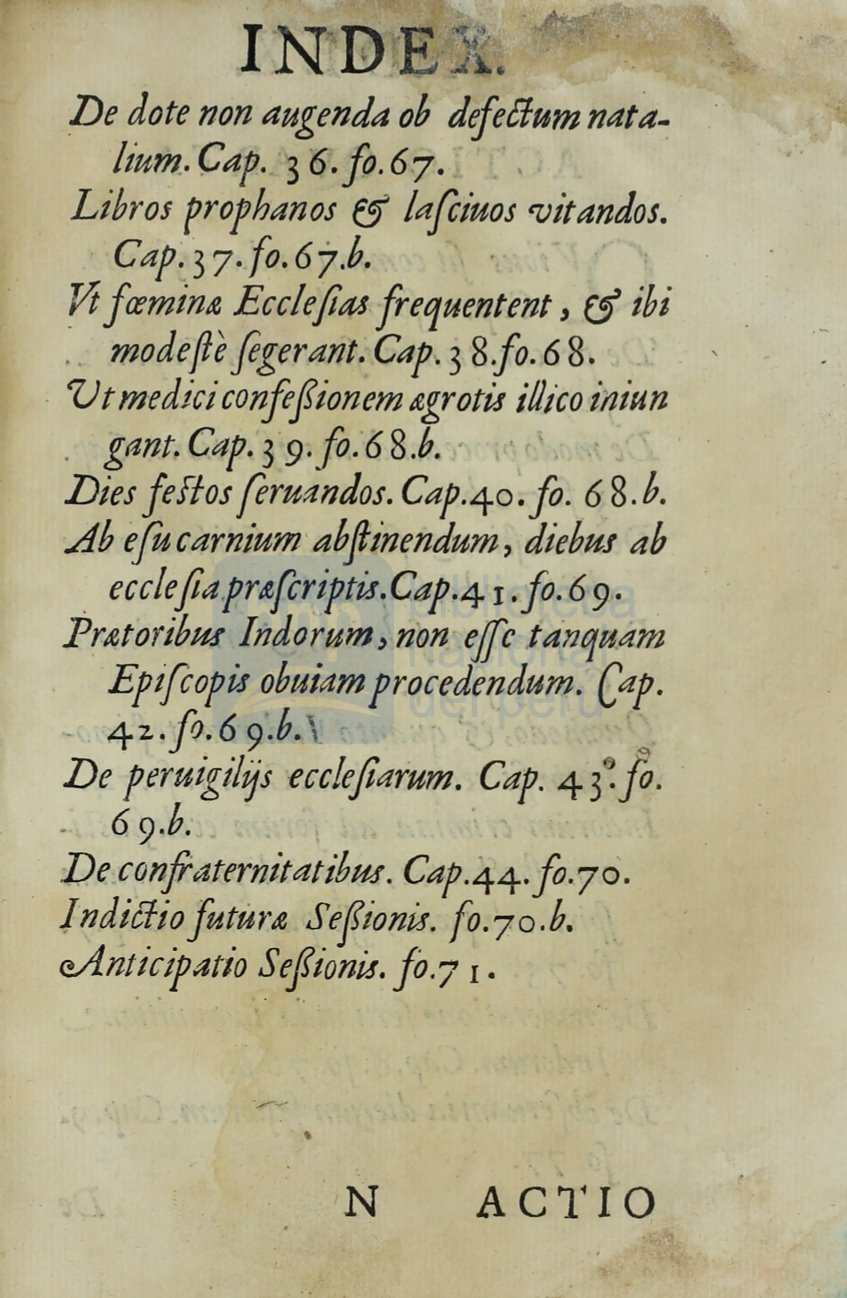 INDEX.
De dote non augenda ob defectum nata-
lium. Cap. 36. fo. 67.
Libros prophanos & laſciuos vitandos.
Cap. 37. fo. 67.b.
Vt fœminæ Eccleſias frequentent, & ibi
modeſtè ſegerant. Cap. 38. fo. 68.
Vt medici confeßionem ægrotis illico iniun
gant. Cap. 39. fo. 68.b.
Dies feſtos ſeruandos. Cap. 40. fo. 68.b.
Ab eſu carnium abſtinendum, diebus ab
eccleſia præſcriptis. Cap. 41. fo. 69.
Prætoribus Indorum, non eſſe tanquam
Epiſcopis obuiam procedendum. Cap.
42. fo. 69.b.
De peruigilijs eccleſiarum. Cap. 43. fo.
69.b.
De confraternitatibus. Cap. 44. fo. 70.
Indictio futuræ Seßionis. fo. 70.b.
Anticipatio Seßionis. fo. 71.
N ACTIO